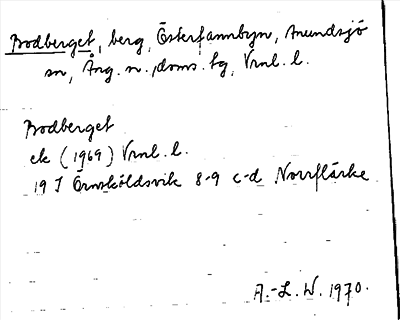 Bodberget, berg, Österfannbyn, Anundsjö
sn, Ång. n. doms. tg, Vrnl. l.
Bodberget
ek (1969) Vrnl. l.
19 J Örnsköldsvik 8-9 c-d Norrflärke
A.-L. W. 1970.